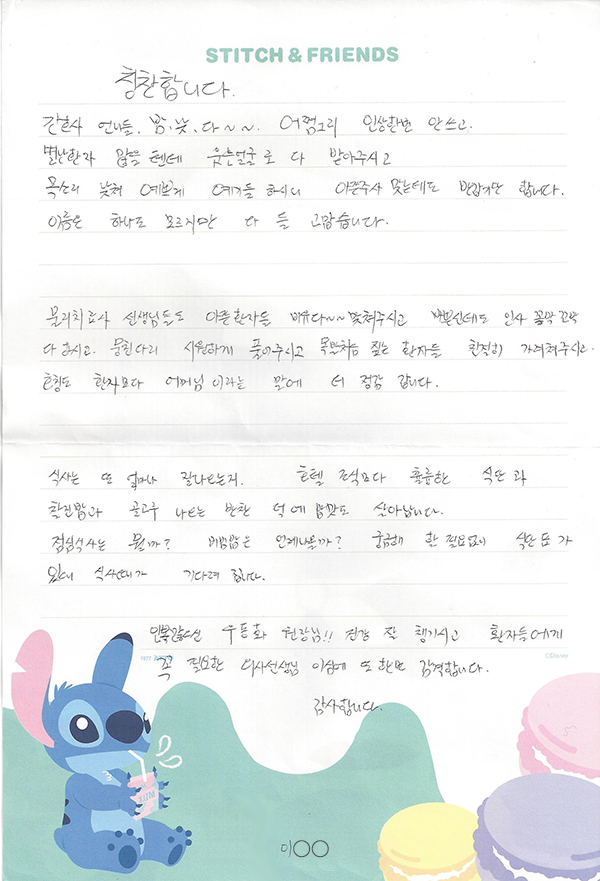 STITCH & FRIENDS
칭찬합니다.
간호사 언니들, 밤, 낮, 다~~. 어쩜그리 인상한번 안쓰고.
별난환자 많을 텐데 웃는얼굴로 다 받아주시고
목소리 낮춰 예쁘게 얘기들 하시니 아픈주사 맞는데도 반갑기만 합니다.
이름은 하나도 모르지만 다 들 고맙습니다.
물리치료사 선생님들도 아픈환자들 비유다~~맞춰주시고 바쁘신데도 인사 꼼박 꼬박
다 하시고. 뭉친다리 시원하게 풀어주시고 목발처음 짚는 환자들 친절히 가르쳐주시고.
호칭도 환자보다 어머님 이라는 말에 더 정감 갑니다.
식사는 또 얼마나 잘나오는지. 호텔 조식보다 훌륭한 식단과
찰진밥과 골고루 나오는 반찬 덕에 밥맛도 살아납니다.
점심식사는 뭘까? 비빔밥은 언제나올까? 궁금해 할 필요없이 식단표가
있어 식사때가 기다려 집니다.
인복많으신 우동화 원장님!! 건강 잘 챙기시고 환자들에게
꼭 필요한 의사선생님 이심에 또한번 감격합니다.
©Disney
감사합니다.
이○○